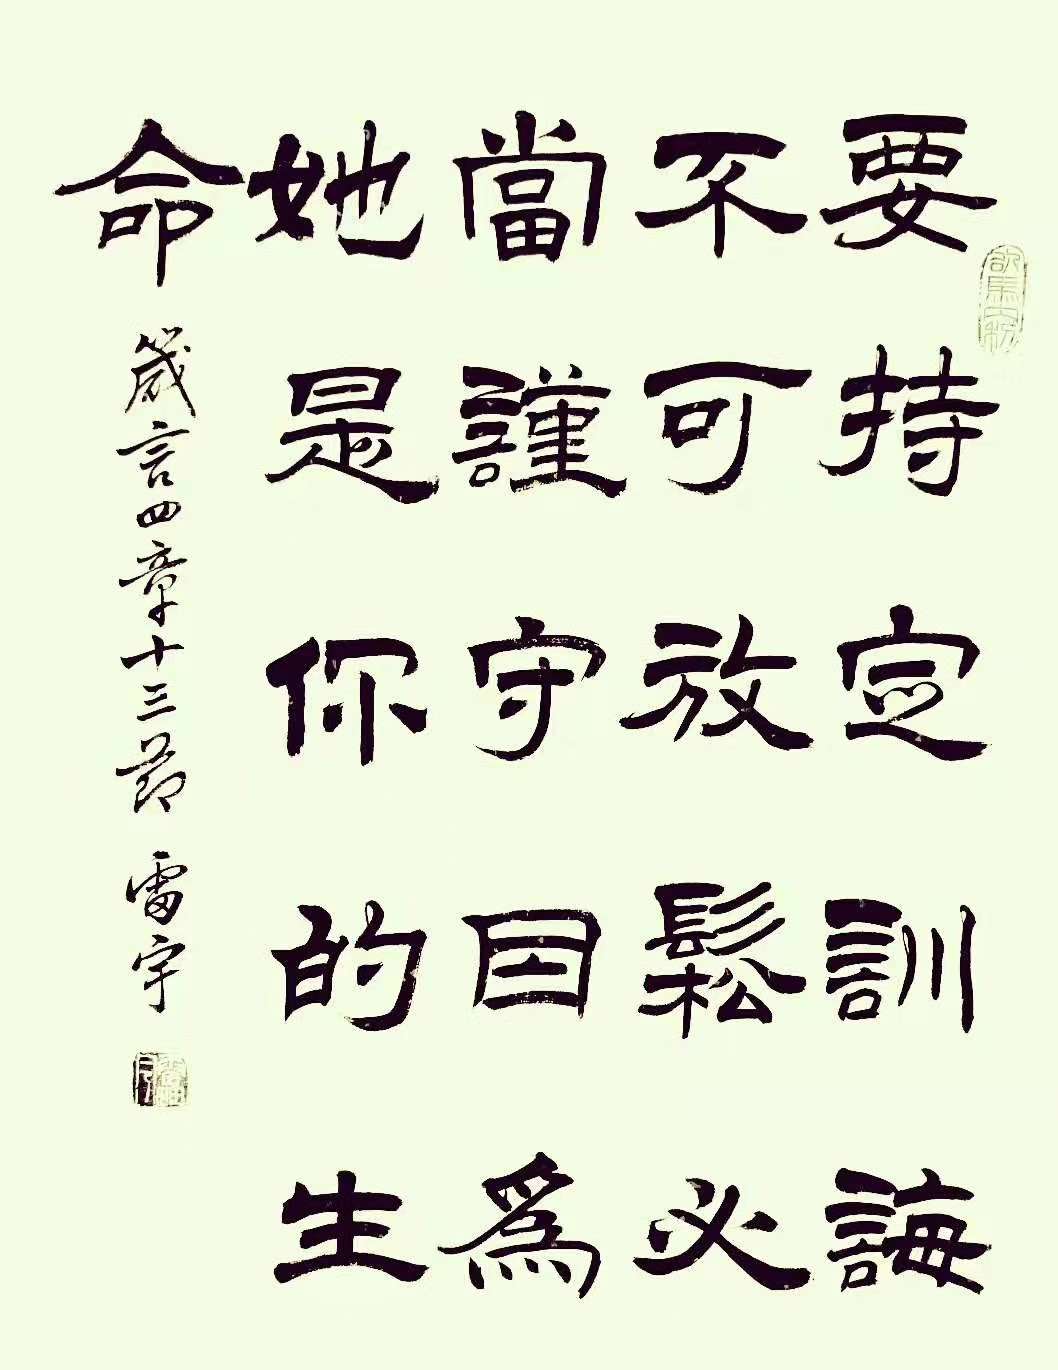 要持定訓誨
不可放鬆必
當謹守因爲
她是你的生
命
箴言四章十三節 雷宇